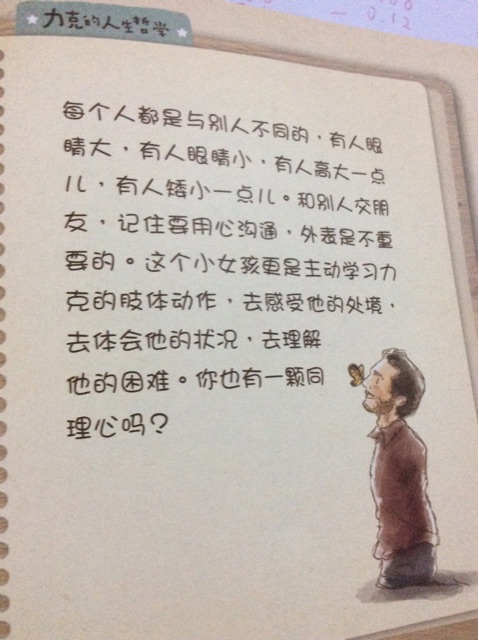 力克的人生哲学
0.12
每个人都是与别人不同的，有人眼
睛大，有人眼睛小，有人高大一点
儿，有人矮小一点儿。和别人交朋
友，记住要用心沟通，外表是不重
要的。这个小女孩更是主动学习力
克的肢体动作，去感受他的处境，
去体会他的状况，去理解
他的困难。你也有一颗同
理心吗？